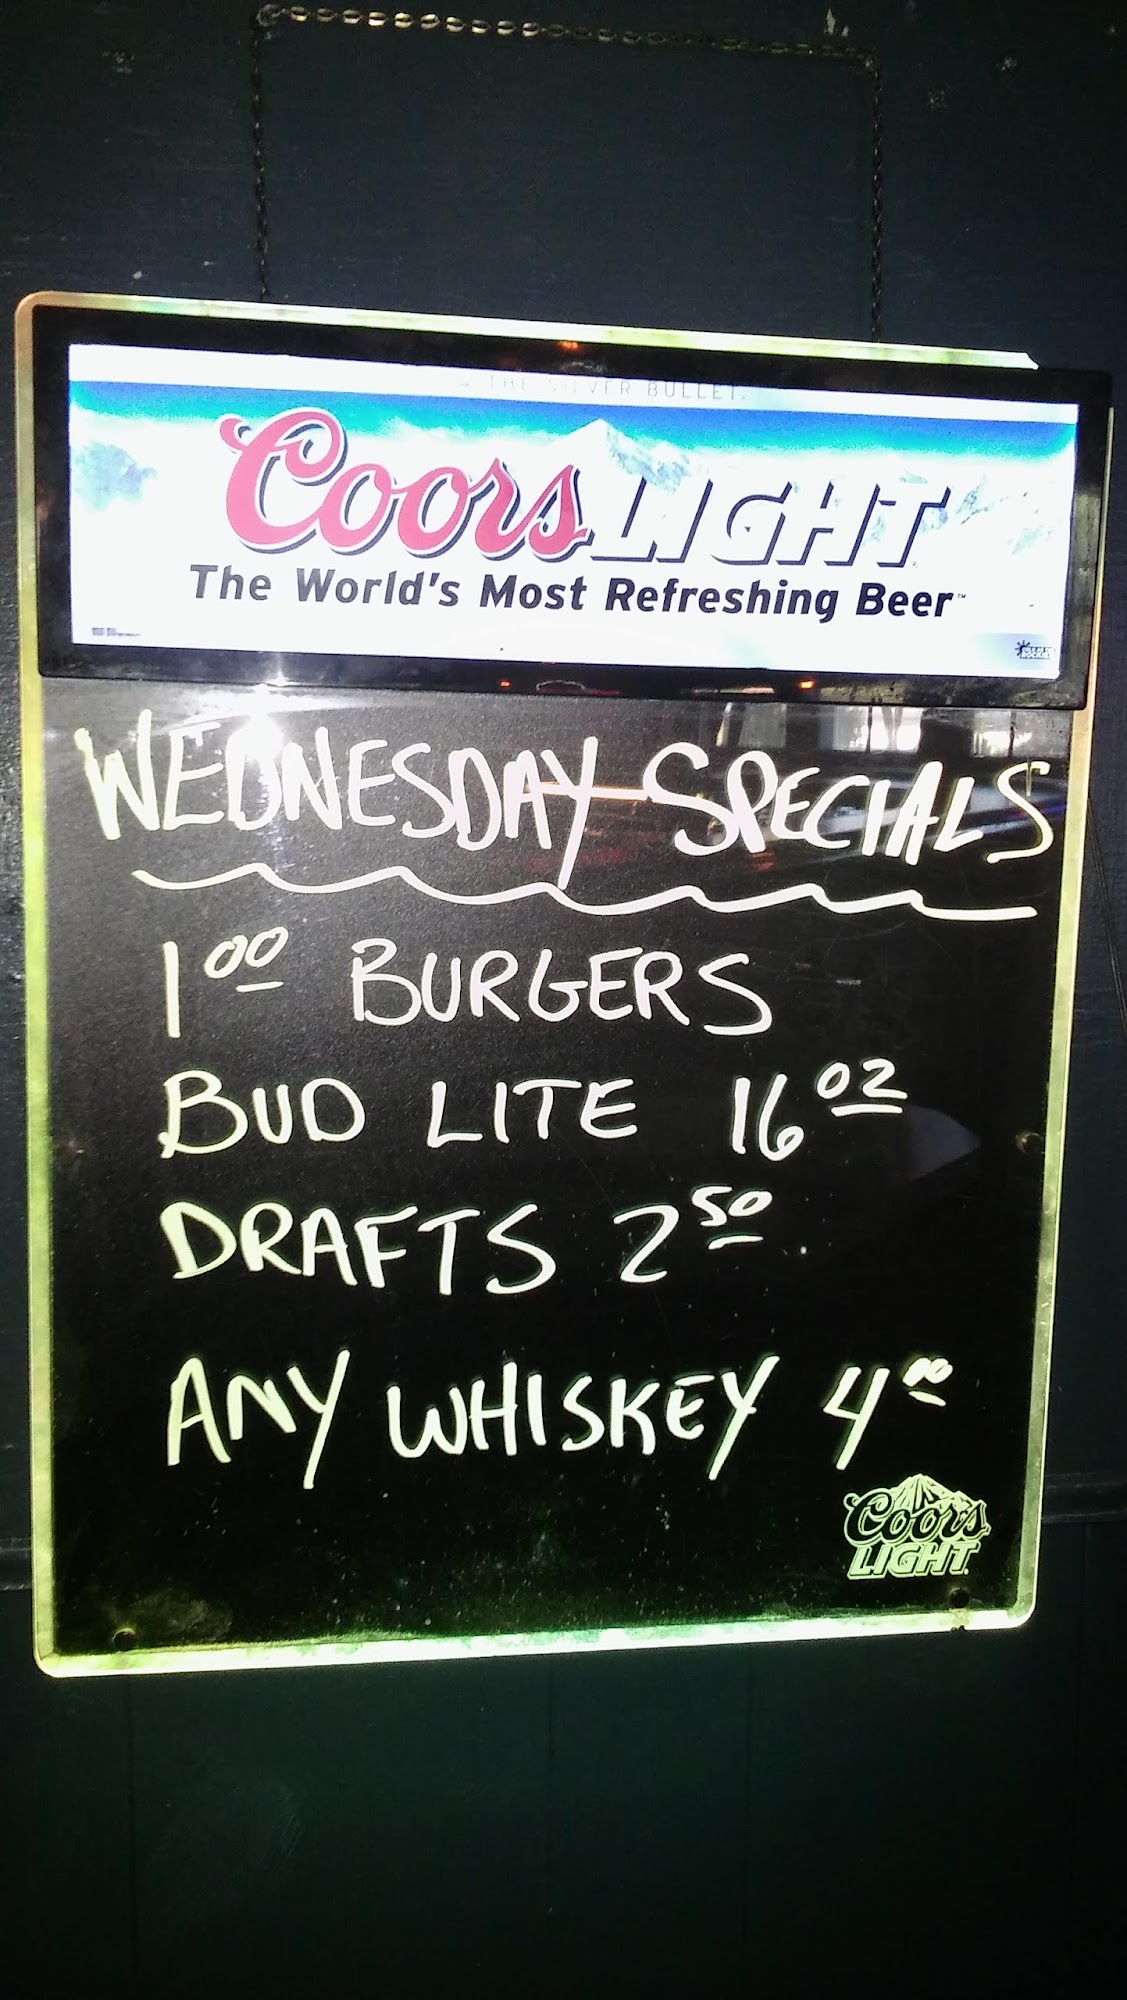 THE SILVER BULLET.
Coors LIGHT
The World's Most Refreshing Beer™
WEDNESDAY SPECIALS
1 00 BURGERS
BUD LITE 16 OZ
DRAFTS 2 50
ANY WHISKEY 4 00
Coors
LIGHT